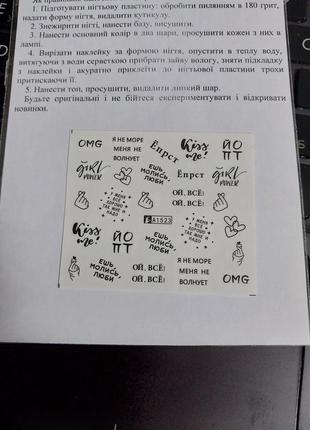 1. Підготувати нігтьову пластину: обробити пилянням в 180 грит,
надати форму нігтя, видалити кутикулу.
2. Знежирити нігті, нанести базу, висушити.
3. Нанести основний колір в два шари, просушити кожен з них в
лампі.
4. Вирізати наклейку за формою нігтя, опустити в теплу воду,
витягуючи з води серветкою прибрати зайву вологу, зняти підкладку
з наклейки і акуратно приклеїти до нігтьової пластини трохи
притискаючи її.
5. Нанести топ, просушити, видалити липкий шар.
Будьте оригінальні і не бійтеся експериментувати і відкривати
новинки.
OMG
Я НЕ МОРЕ
МЕНЯ НЕ
ВОЛНУЕТ
Kiss
me!
ЙО
ПТ
GIRL
POWER
ЕШЬ,
МОЛИСЬ,
ЛЮБИ
Ёпрст
ОЙ, ВСЁ!
ОЙ, ВСЁ!
У МЕНЯ
ВСЁ
ХОРОШО
ТАК МНЕ
НАДО
A1523
У МЕНЯ
ВСЁ
ХОРОШО
ТАК МНЕ
НАДО
Kiss
me!
ЙО
ПТ
ЕШЬ,
МОЛИСЬ,
ЛЮБИ
Ёпрст
GIRL
POWER
ЕШЬ,
МОЛИСЬ,
ЛЮБИ
ОЙ, ВСЁ!
ОЙ, ВСЁ!
Я НЕ МОРЕ
МЕНЯ НЕ
ВОЛНУЕТ
OMG